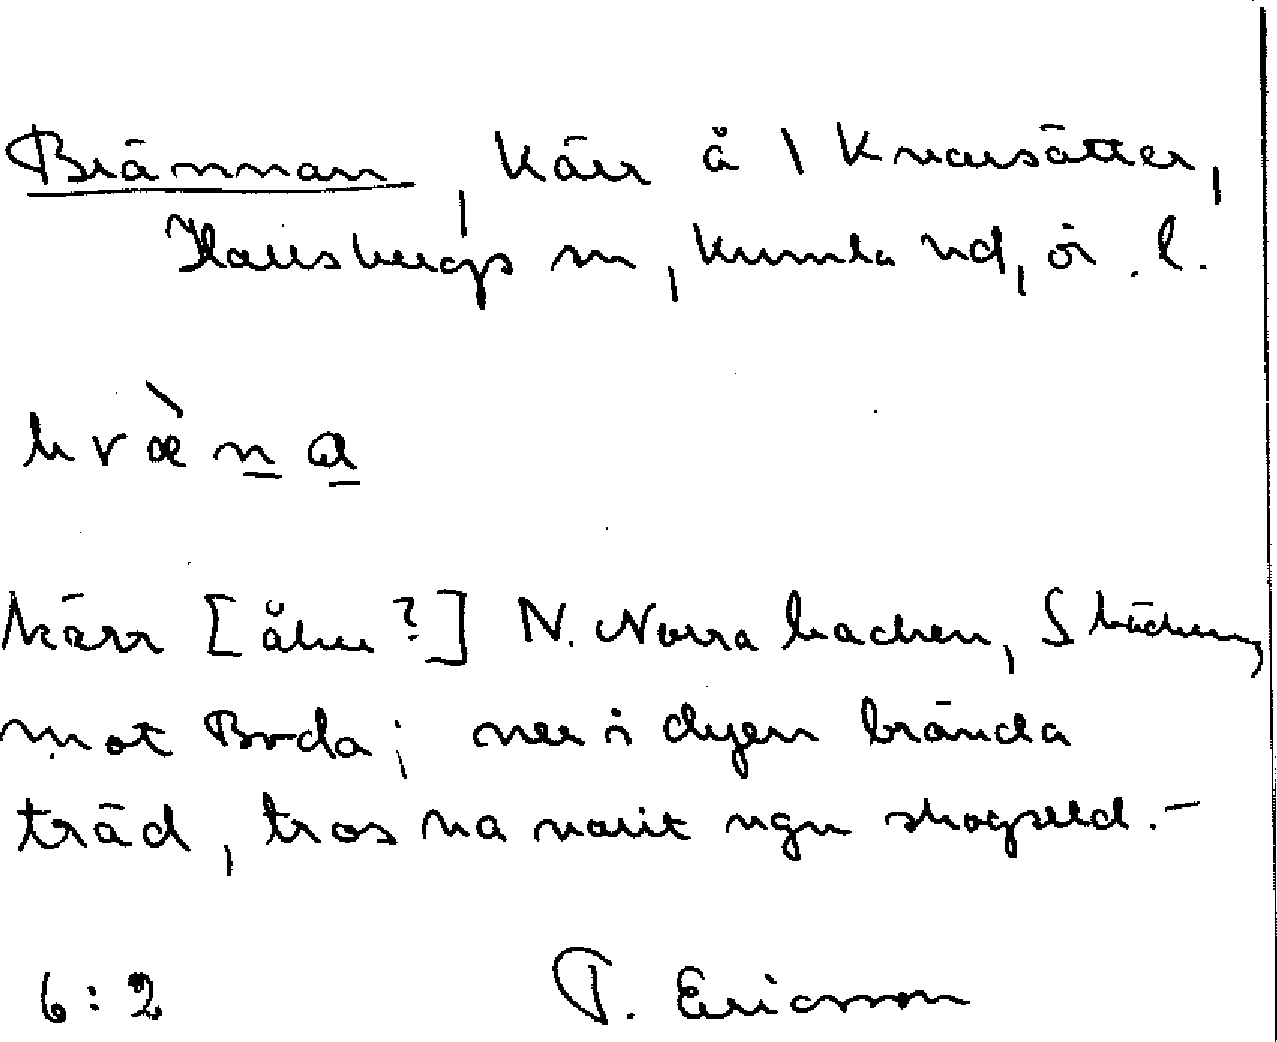 Brännan, kärr å \ Kvarsätter,
Hallsbergs sn, Kumla hd, ör. l.
bræ̀na
kärr [åker?] N. Norra backen,
mot Boda; ner i dyen brända
träd, tros ha varit ngn skogseld. –
6:2 T. Ericsson